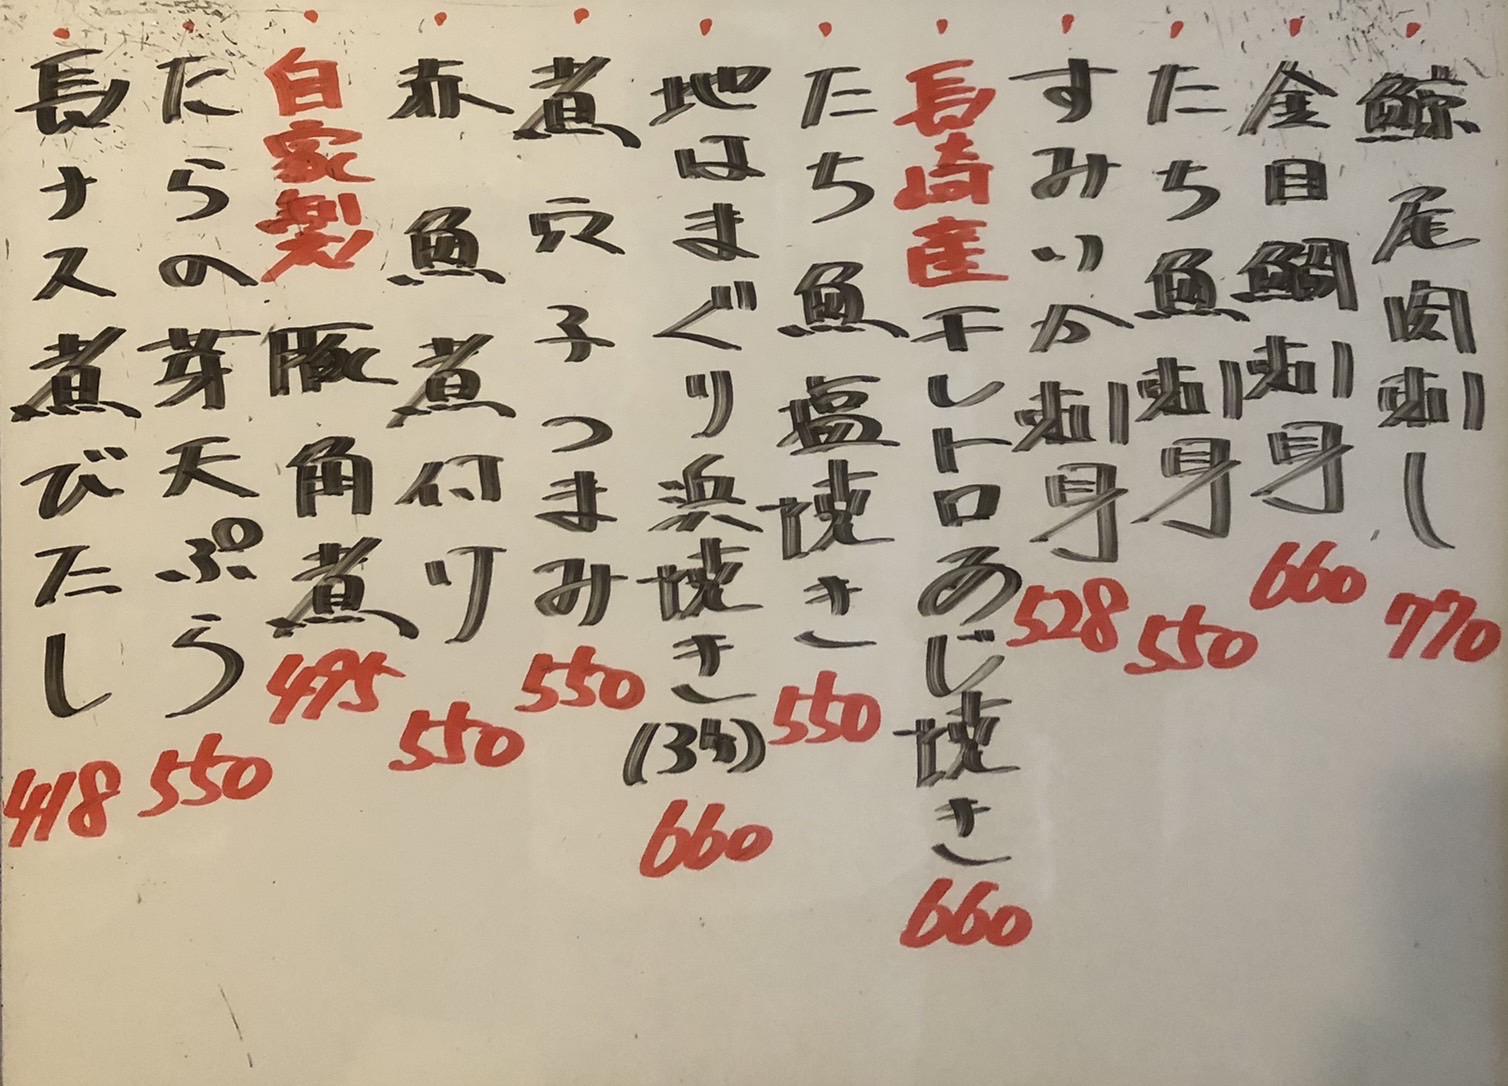 鯨尾肉刺し 770
金目鯛刺身 660
たち魚刺身 550
すみいか刺身 528
長崎産干しトロあじ焼き 660
たち魚塩焼き 550
地はまぐり浜焼き(3ケ) 660
煮穴子つまみ 550
赤魚煮付り 550
自家製豚角煮 495
たらの芽天ぷら 550
長ナス煮びたし 418